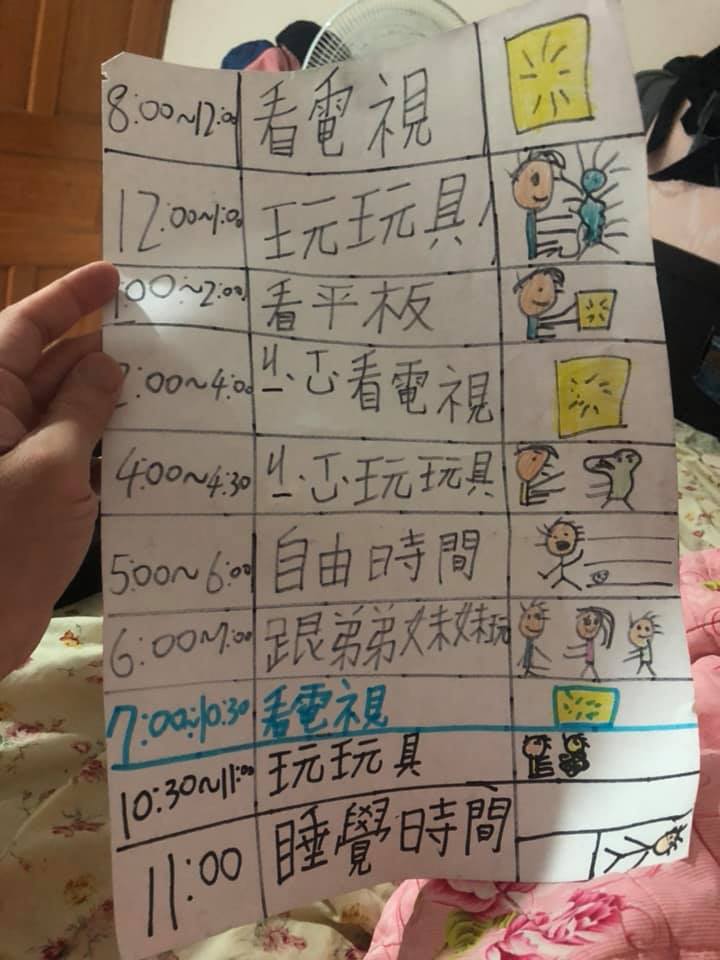 8:00~12:00 看電視
12:00~1:00 玩玩具
1:00~2:00 看平板
2:00~4:00 ㄐㄧˋ ㄒㄩˋ看電視
4:00~4:30 玩玩具
5:00~6:00 自由時間
6:00~7:00 跟弟弟妹妹玩
7:00~10:30 看電視
10:30~11:00 玩玩具
11:00 睡覺時間